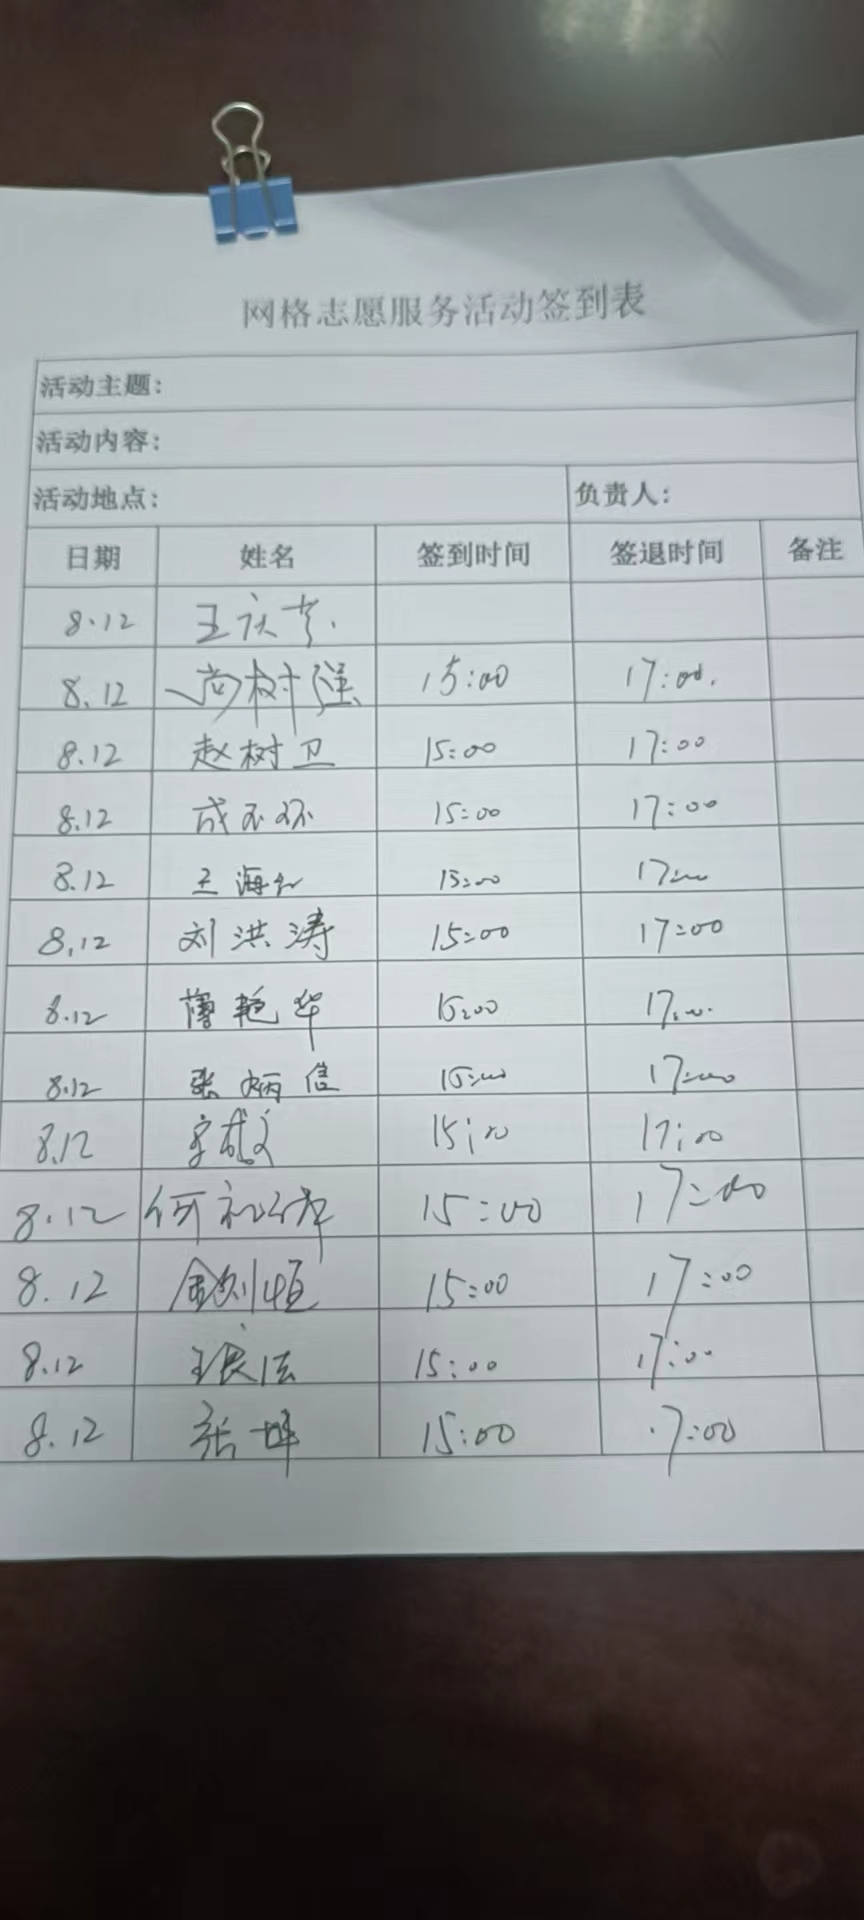 网格志愿服务活动签到表
活动主题：
活动内容：
活动地点： 负责人：
日期 姓名 签到时间 签退时间 备注
8.12 王
8.12 树强 15:00 17:00.
8.12 赵树卫 15:00 17:00
8.12 成 15:00 17:00
8.12 王海 15:00 17:00
8.12 刘洪涛 15:00 17:00
8.12 艳华 15:00 17:00
8.12 张炳信 15:00 17:00
8.12 15:00 17:00
8.12 何 15:00 17:00
8.12 15:00 17:00
8.12 15:00 17:00
8.12 张坤 15:00 17:00